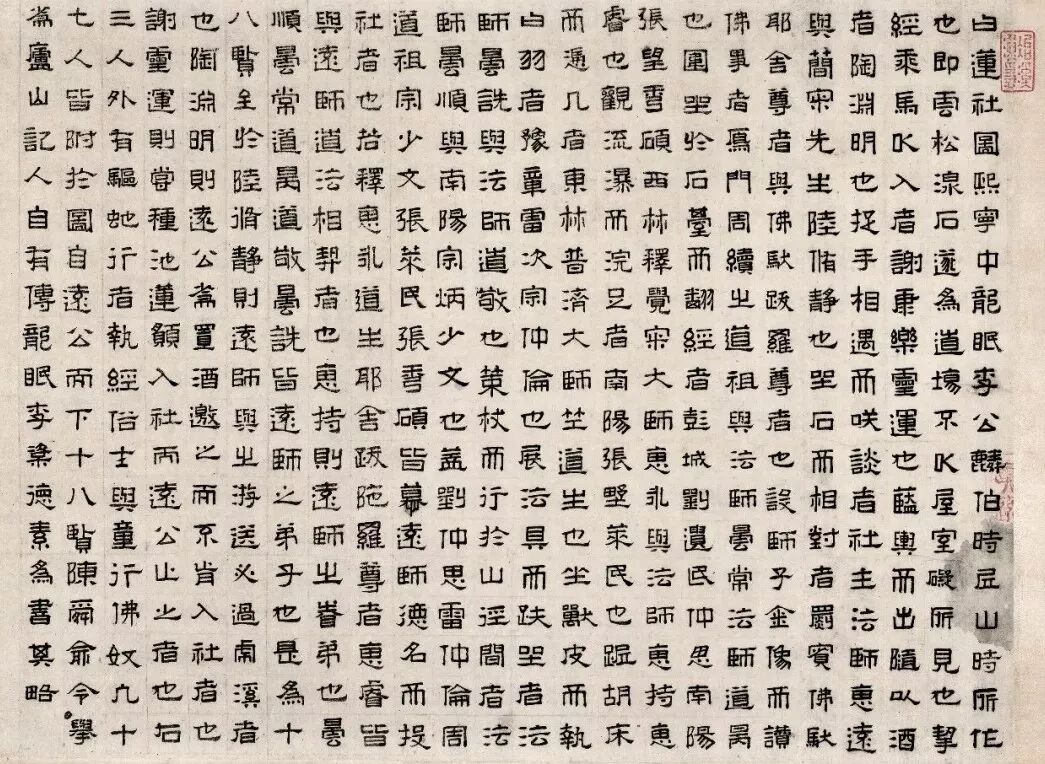 白蓮社圖熙寧中龍眠李公麟伯時居山時所作
也即雲松湶石遂為道場不以屋室礙所見也挈
經乘馬以入者謝康樂靈運也藍輿而出隨以酒
者陶淵明也捉手相遇而咲談者社主法師惠遠
與簡寂先生陸脩静也坐石而相對者罽賓佛馱
耶舍尊者與佛馱跋羅尊者也設師子金像而讚
佛事者鴈門周續之道祖與法師曇常法師道昺
也圍坐於石臺而翻經者彭城劉遺民仲思南陽
張碩西林釋覺寂大師惠永與法師惠持惠
睿也觀流瀑而浣足者南陽張埜萊民也踞胡床
而遞几者東林普濟大師竺道生也坐獸皮而執
白羽者豫章雷次宗仲倫也展法具而趺坐者法
師曇詵與法師道敬也策杖而行於山徑間者法
師曇順與南陽宗炳少文也蓋劉仲思雷仲倫周
道祖宗少文張萊民張碩皆慕遠師德名而投
社者也若釋惠永道生耶舍跋陁羅尊者惠睿皆
與遠師道法相契者也惠持則遠師之眷弟也曇
順曇常道昺道敬曇詵皆遠師之弟子也是為十
八賢至於陸脩静則遠師與之游送必過虎溪者
也陶淵明則遠公為置酒邀之而不肯入社者也
謝靈運則甞種池蓮願入社而遠公止之者也右
三人外有驅虵行者執經俗士與童行佛奴凢十
七人皆附於圖自遠公而下十八賢陳舜俞令舉
為廬山記人自有傳龍眠李楶德素為書其略